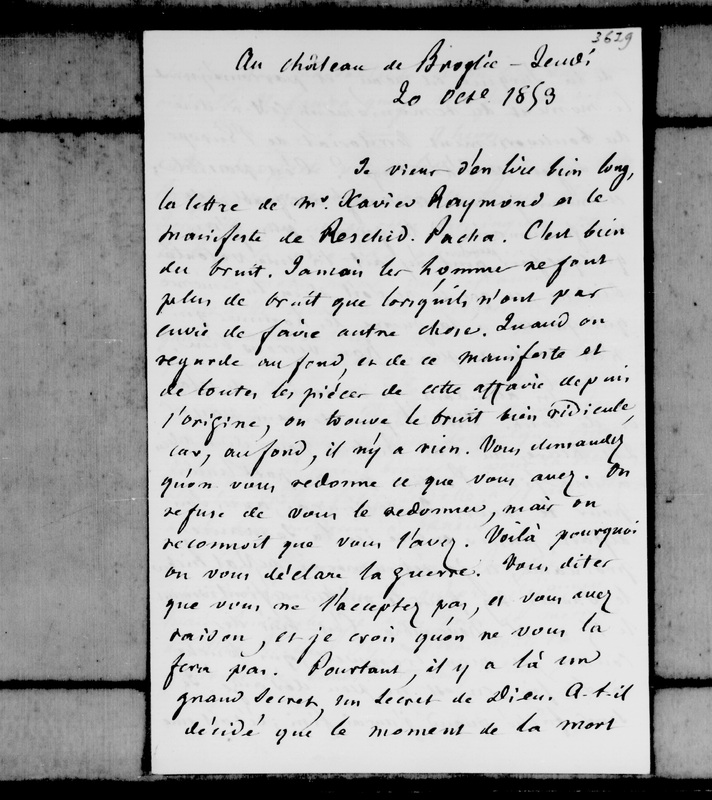 3629
Au château de Broglie - Jeudi
20 Octe 1853
Je viens d'en lire bien long,
la lettre de Mr. Xavier Raymond et le
manifeste de Reschid-Pacha. C'est bien
du bruit. Jamais les hommes ne font
plus de bruit que lorsqu'ils n'ont pas
envie de faire autre chose. Quand on
regarde au fond, et de ce manifeste et
de toutes les pièces de cette affaire depuis
l'origine, on trouve le bruit bien ridicule,
car, au fond, il n'y a rien. Vous demandez
qu'on vous redonne ce que vous avez. On
refuse de vous le redonner, mais on
reconnoit que vous l'avez. Voilà pourquoi
on vous déclare la guerre. Vous dites
que vous ne l'acceptez pas, et vous avez
raison, et je crois qu'on ne vous la
fera pas. Pourtant, il y a là un
grand secret, un secret de Dieu. A-t-il
décidé que le moment de la mort